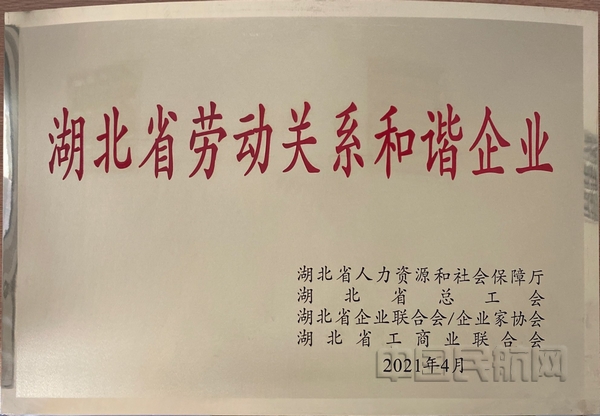 湖北省劳动关系和谐企业
湖北省人力资源和社会保障厅
湖北省总工会
湖北省企业联合会/企业家协会
湖北省工商业联合会
2021年4月
中国民航网